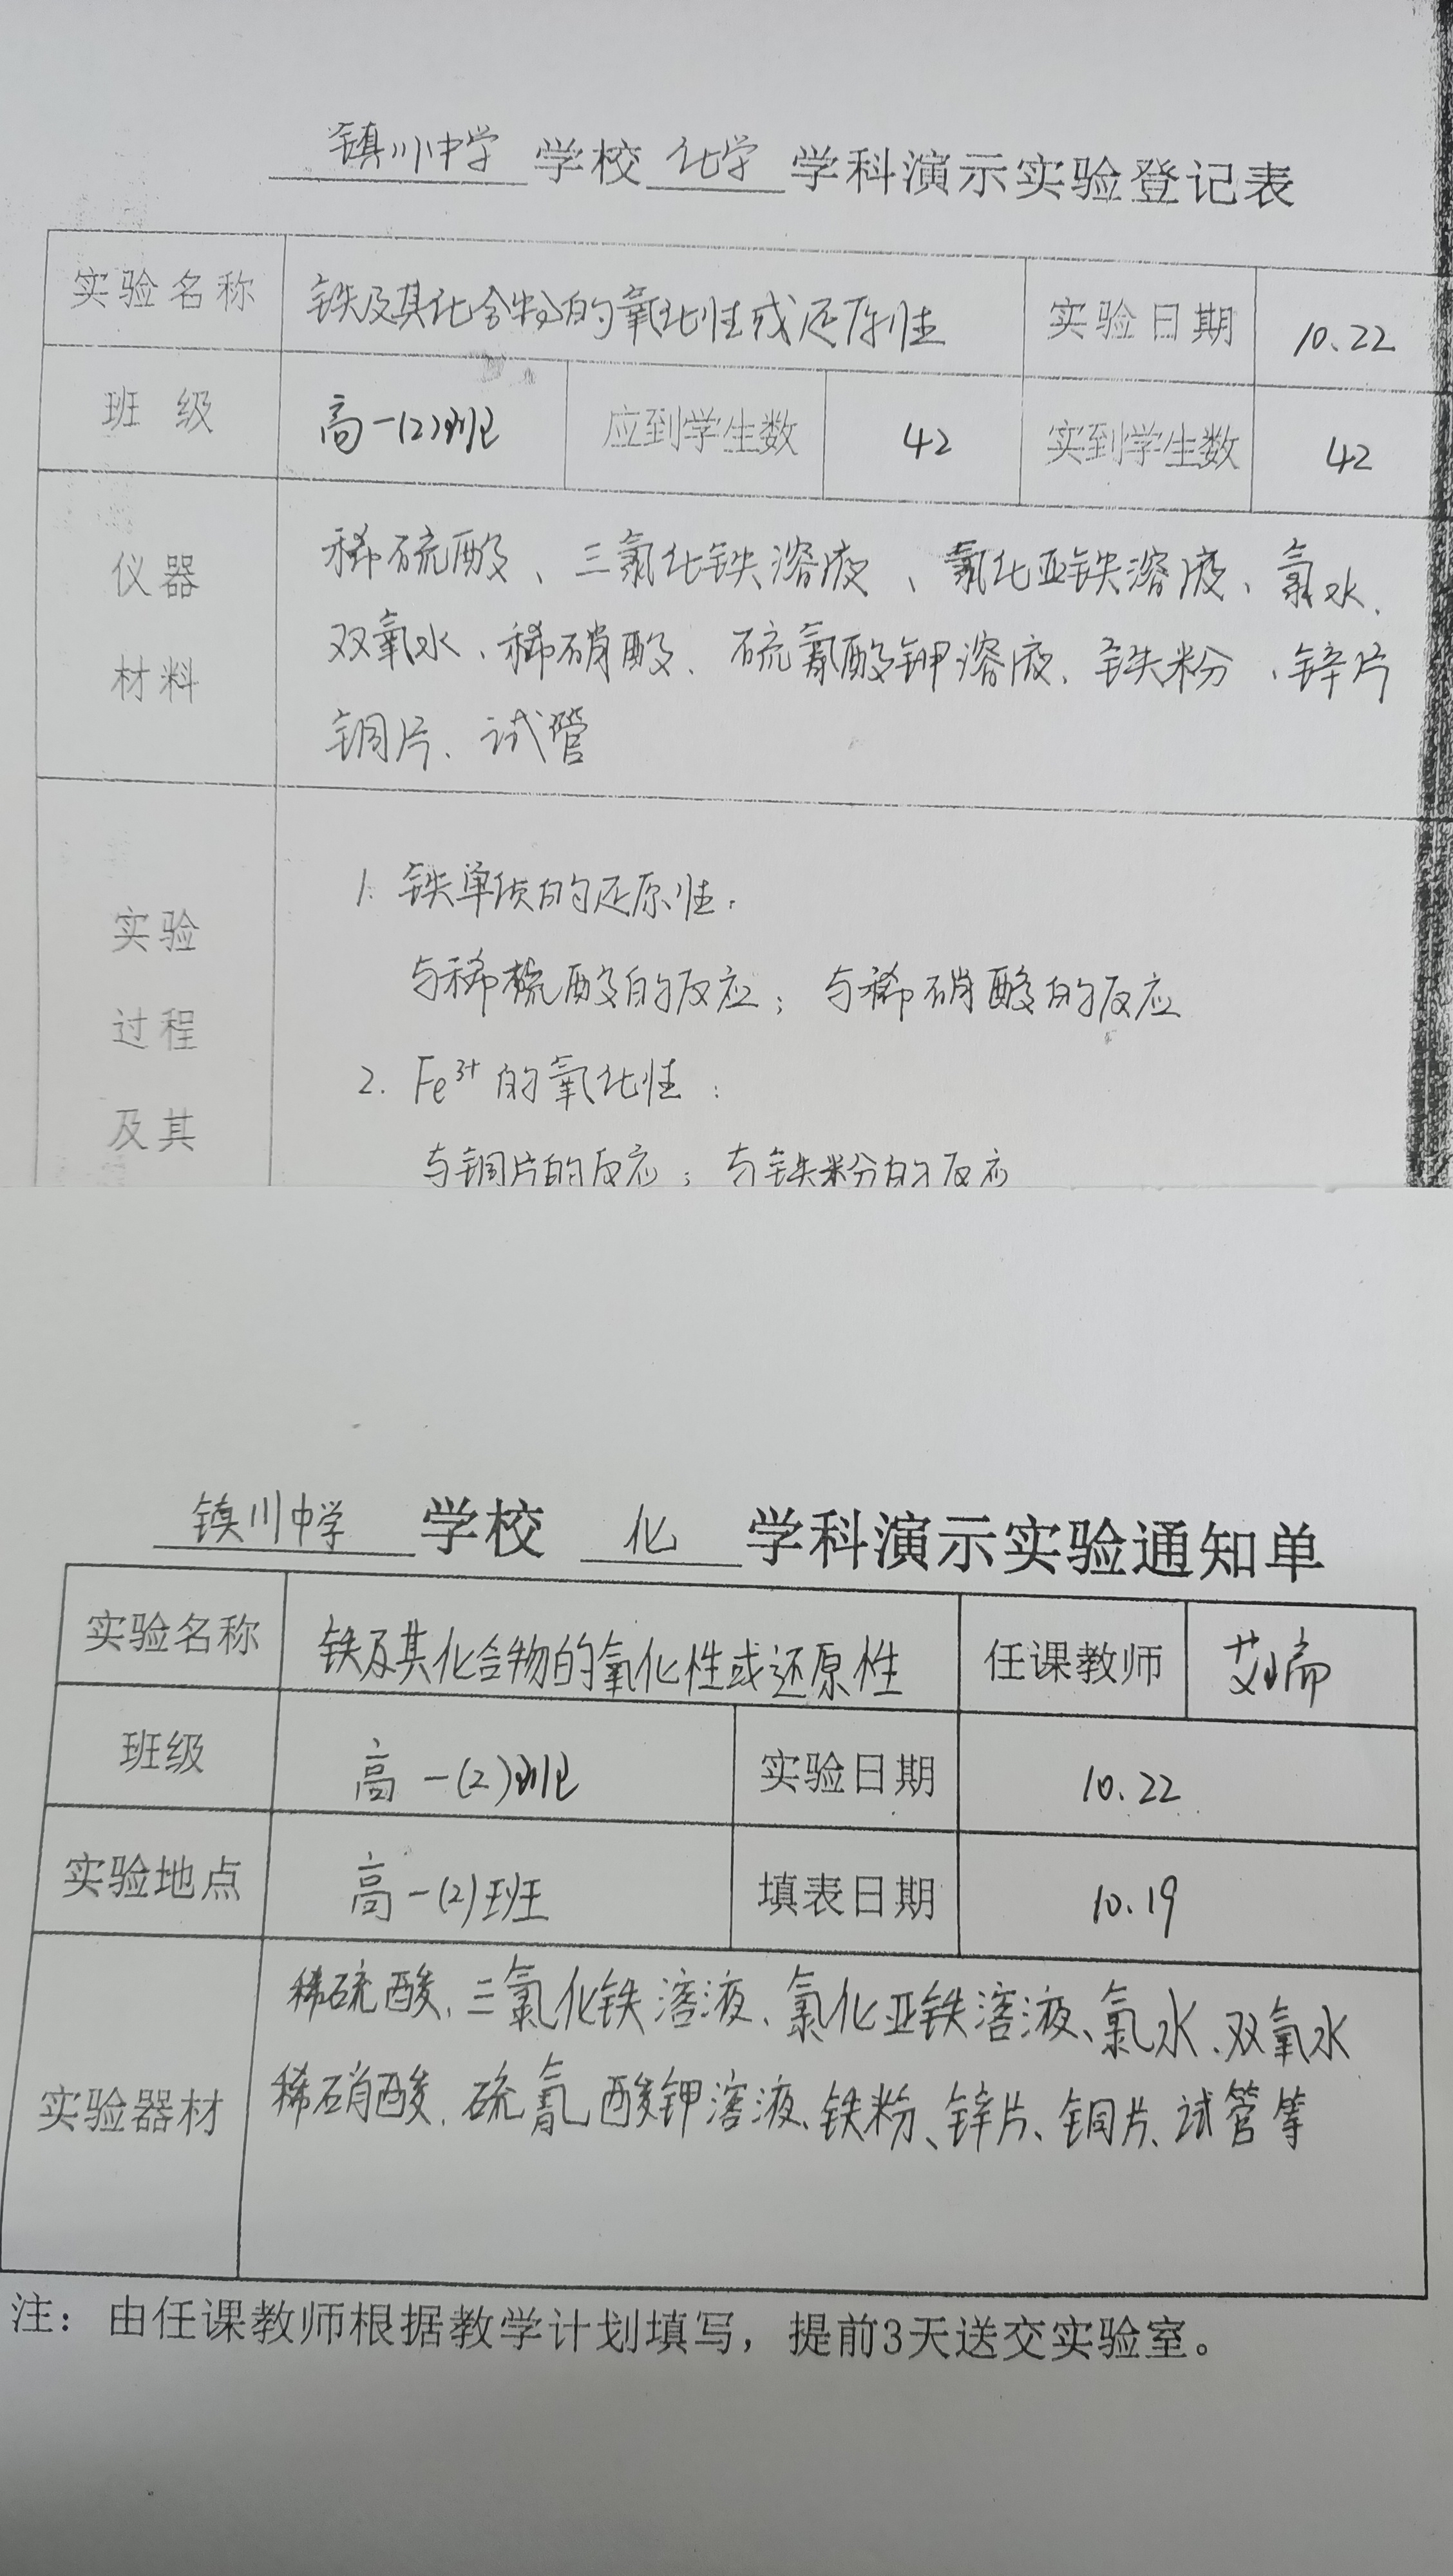 镇川中学 学校 化学 学科演示实验登记表
实验名称 铁及其化合物的氧化性或还原性 实验日期 10.22
班 级 高一(2)班 应到学生数 42 实到学生数 42
仪器 材料
稀硫酸、三氯化铁溶液、氯化亚铁溶液、氯水、
双氧水、稀硝酸、硫氰酸钾溶液、铁粉、锌片
铜片、试管
实验 过程 及其
1. 铁单质的还原性:
与稀硫酸的反应; 与稀硝酸的反应
2. Fe³⁺的氧化性:
与铜片的反应; 与铁粉的反应
镇川中学 学校 化 学科演示实验通知单
实验名称 铁及其化合物的氧化性或还原性 任课教师 艾瑞
班级 高一(2)班 实验日期 10.22
实验地点 高一(2)班 填表日期 10.19
实验器材
稀硫酸、三氯化铁溶液、氯化亚铁溶液、氯水、双氧水
稀硝酸、硫氰酸钾溶液、铁粉、锌片、铜片、试管等
注：由任课教师根据教学计划填写，提前3天送交实验室。